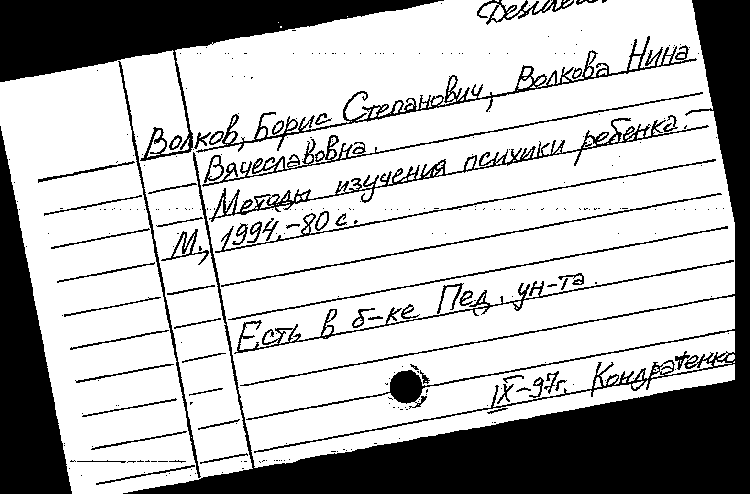 Волков, Борис Степанович, Волкова Нина
Вячеславовна.
Методы изучения психики ребенка.—
М., 1994.-80 с.
Есть в б-ке Пед. ун-та.
IX-97г. Кондратенко